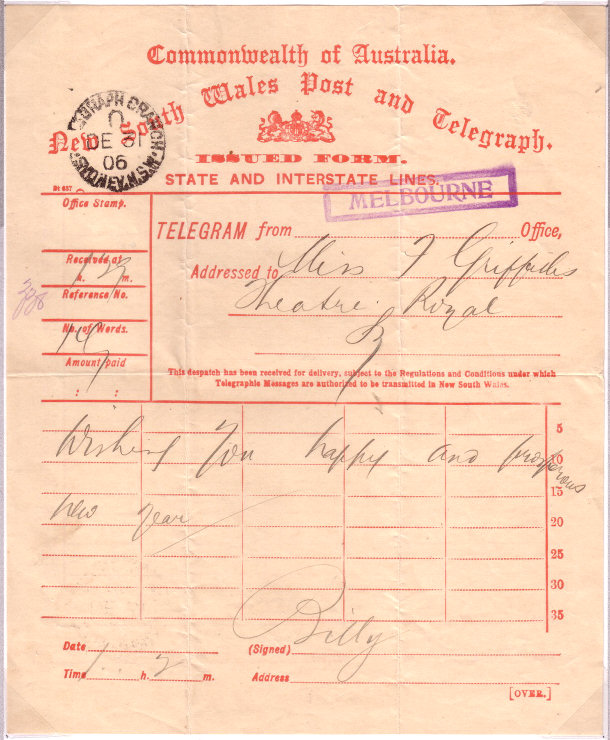 Commonwealth of Australia.
New South Wales Post and Telegraph.
TELEGRAPH BRANCH.
DE 31
06
N.S.W. SYDNEY
ISSUED FORM.
STATE AND INTERSTATE LINES.
MELBOURNE
Office Stamp.
TELEGRAM from Office,
Received at
h. m.
Addressed to Miss F Griffiths
Reference/No.
Theatre Royal
No. of Words.
Sy
14
Amount paid
: :
This despatch has been received for delivery, subject to the Regulations and Conditions under which
Telegraphic Messages are authorized to be transmitted in New South Wales.
5
Wishing You happy and prosperous
10
15
new year
20
25
30
35
Billy
Date
(Signed)
Time 1 h. 2 m.
Address
[OVER.]